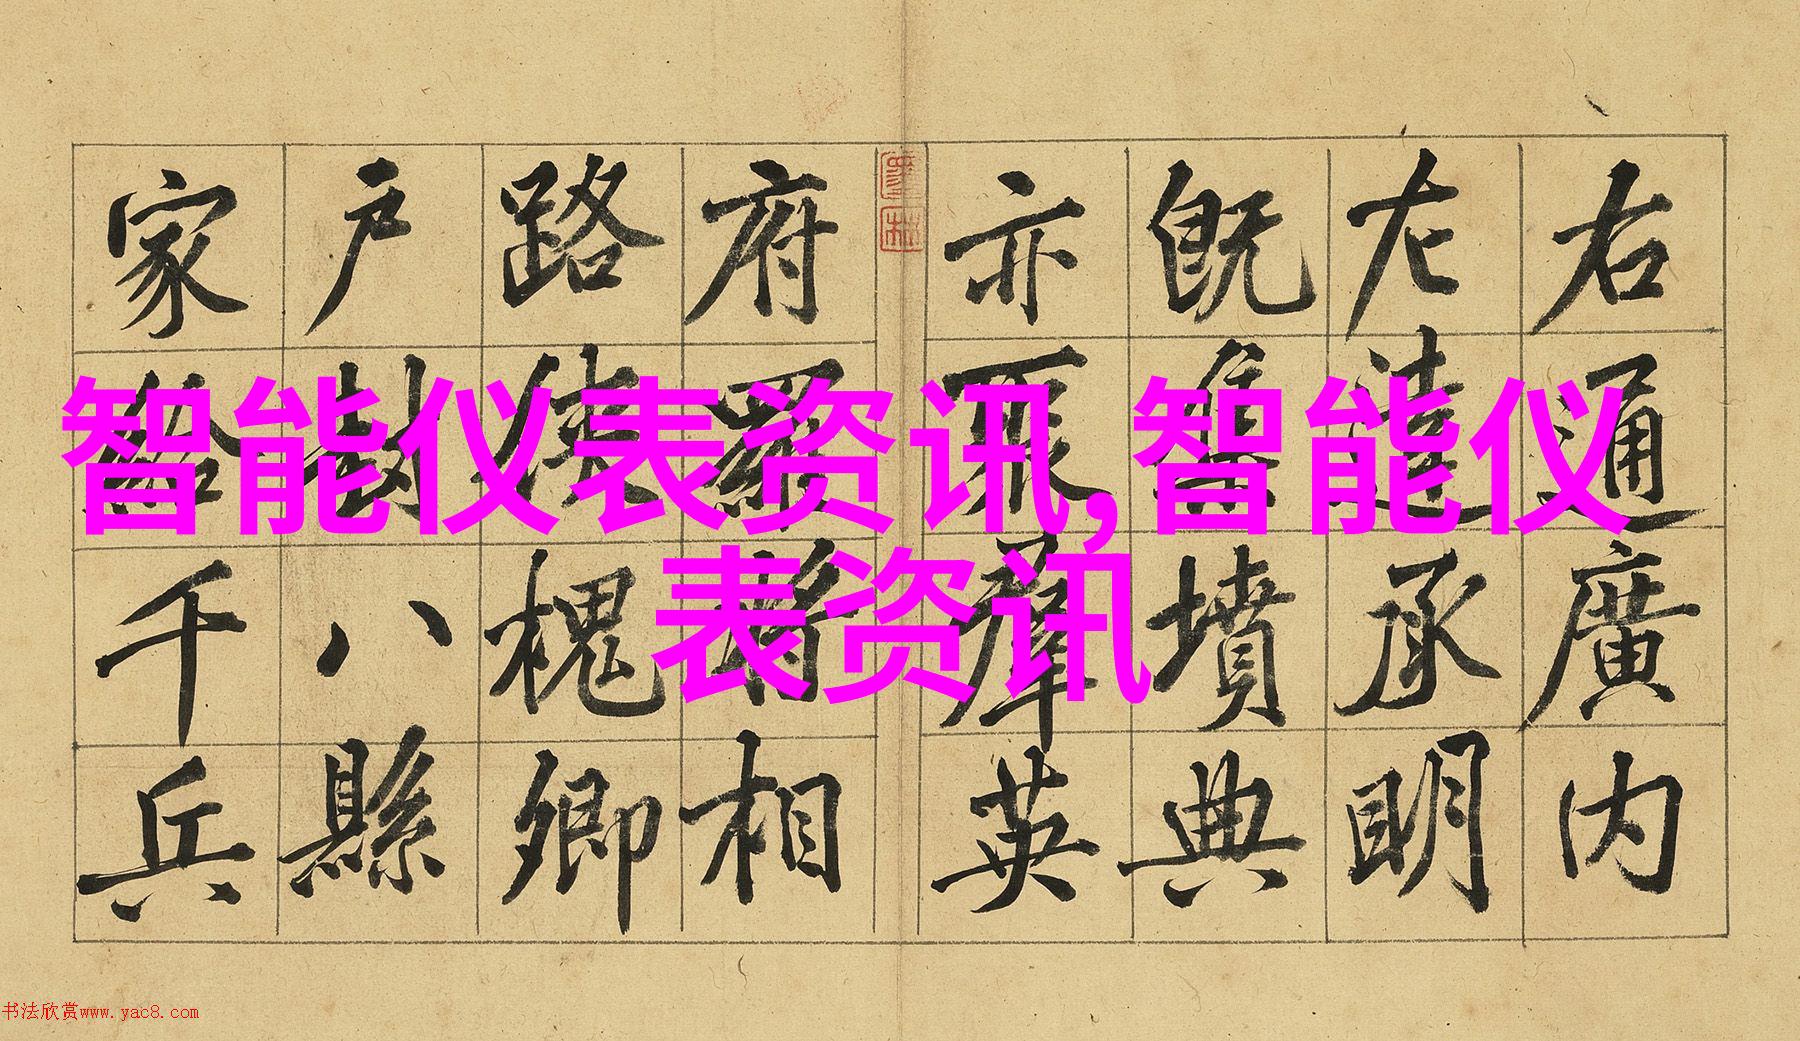 右通廣内
左達承明
既集墳典
亦聚羣英
府羅將相
路俠槐卿
户封八縣
家給千兵
智能仪表资讯,智能仪
表资讯
书法欣赏www.yac8.com